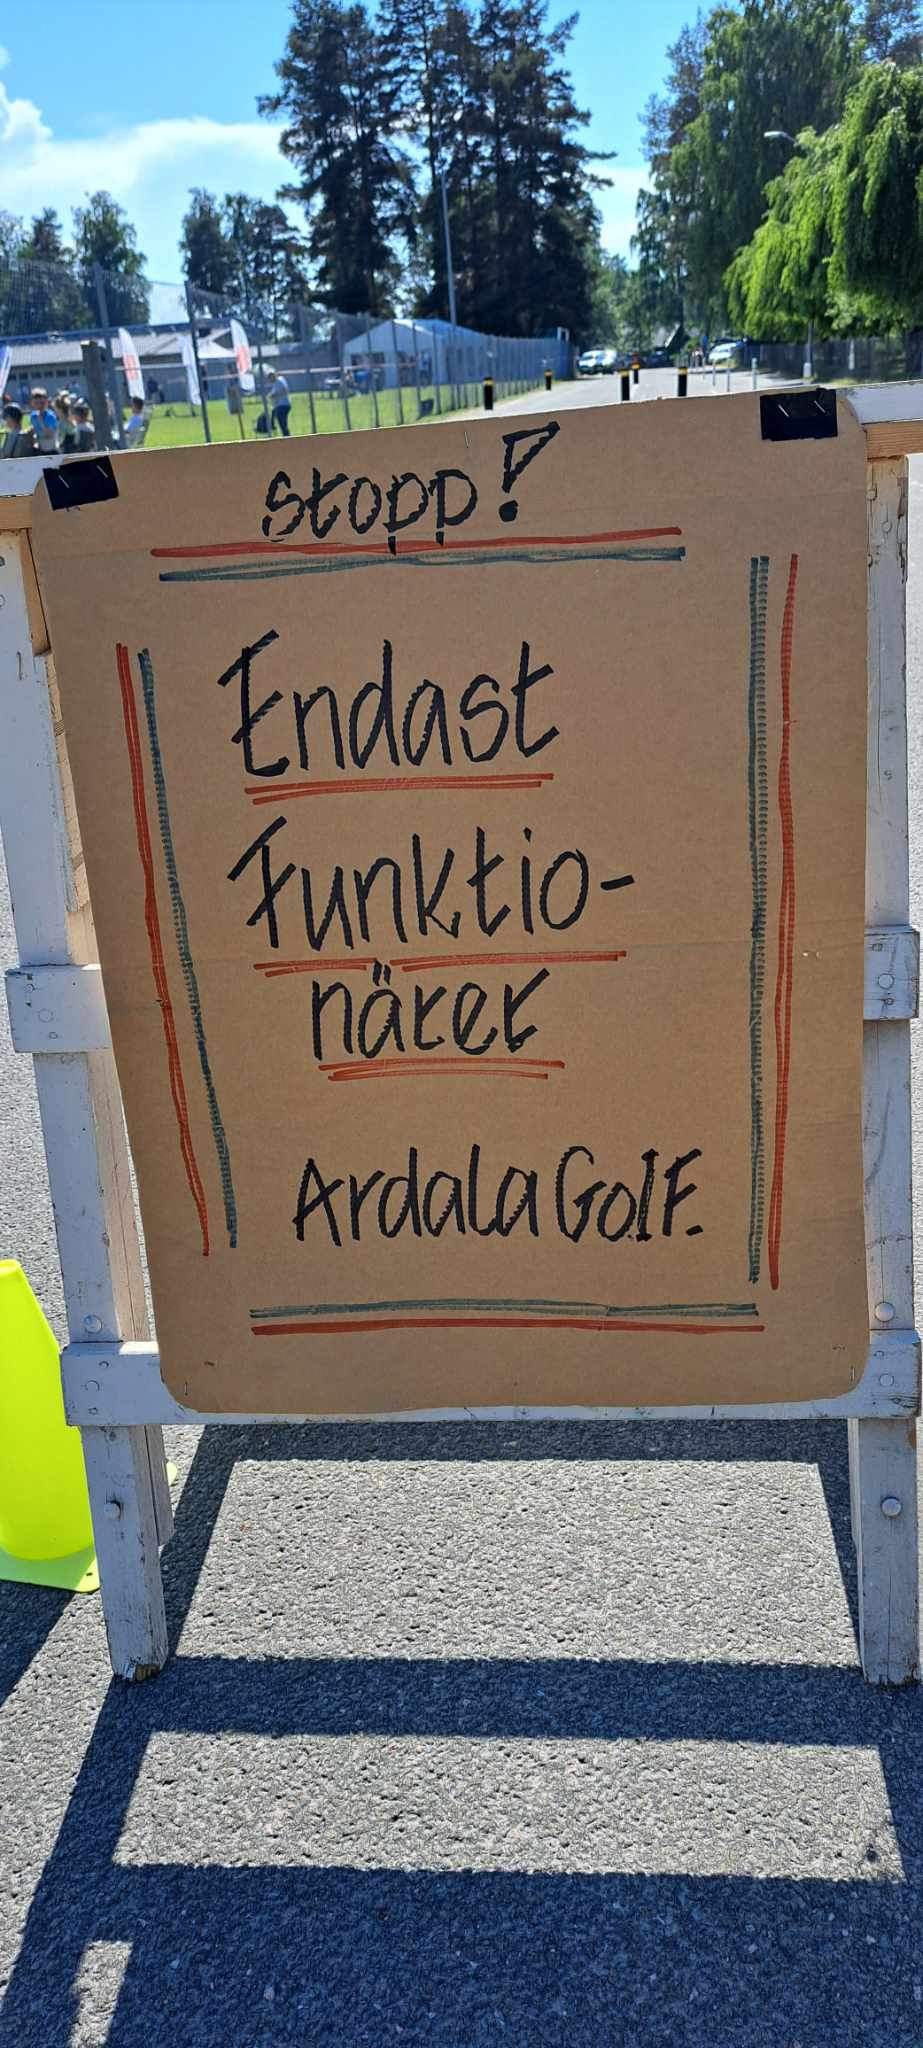 Stopp!
Endast
Funktio-
närer
Ardala GolF.